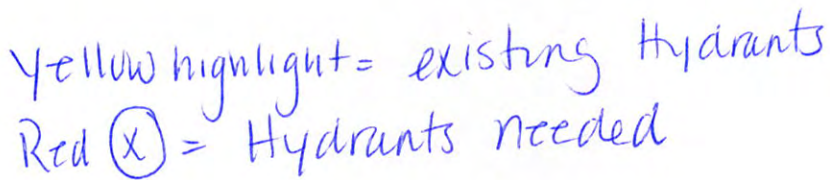 Yellow highlight = existing Hydrants
Red ⓧ = Hydrants needed